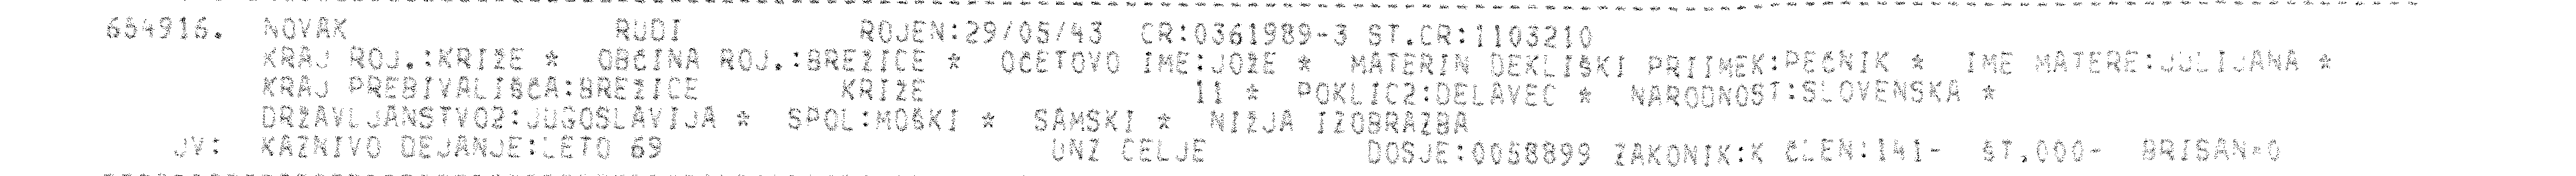 654916. NOVAK RUDI ROJEN:29/05/43 CR:0361989-3 ST.CR:1103210
KRAJ ROJ.:KRIŽE * OBČINA ROJ.:BREŽICE * OČETOVO IME:JOŽE * MATERIN DEKLIŠKI PRIIMEK:PEČNIK * IME MATERE:JULIJANA *
KRAJ PREBIVALIŠČA:BREŽICE KRIŽE 11 * POKLIC2:DELAVEC * NARODNOST:SLOVENSKA *
DRŽAVLJANSTVO2:JUGOSLAVIJA * SPOL:MOŠKI * SAMSKI * NIŽJA IZOBRAZBA
JV: KAZNIVO DEJANJE:LETO 69 UNZ CELJE DOSJE:0058899 ZAKONIK:K ČLEN:141- ŠT.000- BRISAN=0